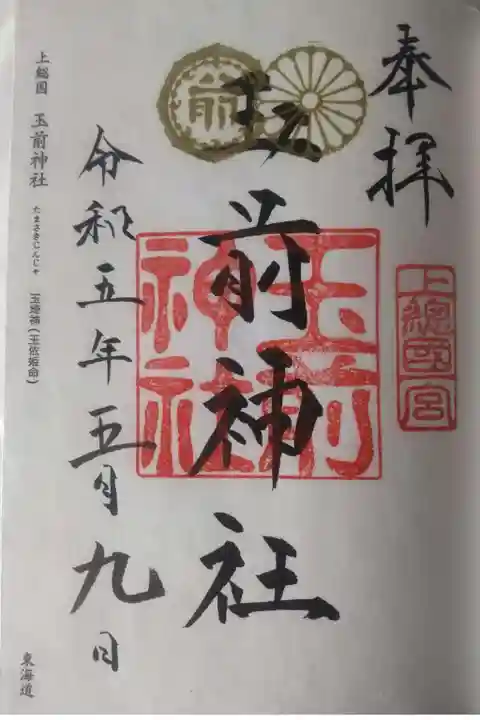 奉拝
上總國一宮
前
玉前神社
玉前神社
令和五年五月九日
上総国 玉前神社 たまさきじんじゃ 玉埼神(玉依姫命)
東海道